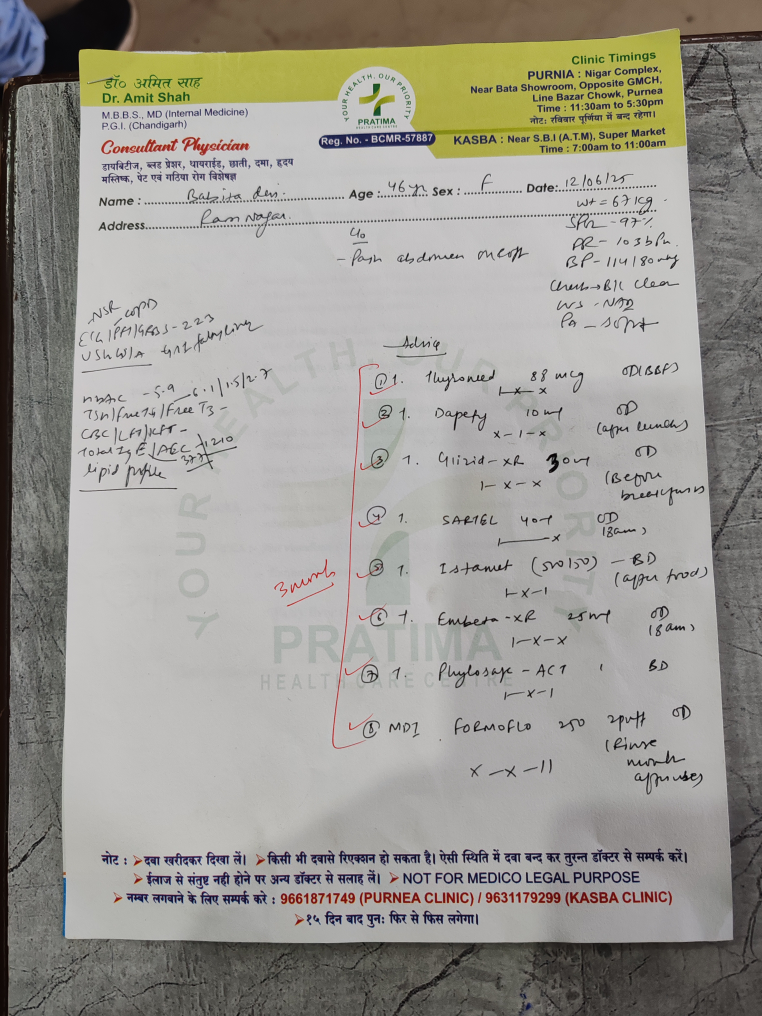 डॉ० अमित साह
Dr. Amit Shah
M.B.B.S., MD (Internal Medicine)
P.G.I. (Chandigarh)
Consultant Physician
डायबिटीज, ब्लड प्रेशर, थायराईड, छाती, दमा, हृदय
मस्तिष्क, पेट एवं गठिया रोग विशेषज्ञ
YOUR HEALTH, OUR PRIORITY
PRATIMA
HEALTH CARE CENTRE
Reg. No. - BCMR-57887
Clinic Timings
PURNIA : Nigar Complex,
Near Bata Showroom, Opposite GMCH,
Line Bazar Chowk, Purnea
Time : 11:30am to 5:30pm
नोट: रविवार पूर्णिया में बन्द रहेगा।
KASBA : Near S.B.I (A.T.M), Super Market
Time : 7:00am to 11:00am
Name : Babita Devi Age : 46 yr Sex : F Date: 12/06/25
Address Ram Nagar
wt = 67 kg
SPO2 - 97%
PR - 103 bpm
BP - 114/80 mmHg
Chest → B/L clear
PA - soft
C/o
- Pain abdomen on & off
NSR COPD
ECG/PFT/GRBS - 223
USG W/A Gr I fatty liver
HbA1C - 5.9
TSH/Free T4/Free T3 - 6.1/1.5/2.7
CBC/LFT/KFT -
Total IgE/AEC 1210
377
lipid profile
Advice
① T. Thyroneed 88 mcg OD (BBF)
1-x-x
② T. Dapefy 10 mg OD
x-1-x (after lunch)
③ T. Glizid-XR 30 mg OD
1-x-x (Before breakfast)
④ T. SARTEL 40 mg OD
(8am)
⑤ T. Istamet (500/50) - BD
1-x-1 (after food)
⑥ T. Embeta-XR 25 mg OD
1-x-x (8am)
⑦ T. Phylosafe-ACT BD
1-x-1
⑧ MDI FORMOFLO 250 2puff OD
x-x-11 (Rinse mouth after use)
3 month
YOUR HEALTH, OUR PRIORITY
PRATIMA
HEALTH CARE CENTRE
नोट : ➤ दवा खरीदकर दिखा लें। ➤ किसी भी दवासे रिएक्शन हो सकता है। ऐसी स्थिति में दवा बन्द कर तुरन्त डॉक्टर से सम्पर्क करें।
➤ ईलाज से संतुष्ट नही होने पर अन्य डॉक्टर से सलाह लें। ➤ NOT FOR MEDICO LEGAL PURPOSE
➤ नम्बर लगवाने के लिए सम्पर्क करे : 9661871749 (PURNEA CLINIC) / 9631179299 (KASBA CLINIC)
➤ १५ दिन बाद पुनः फिर से फिस लगेगा।